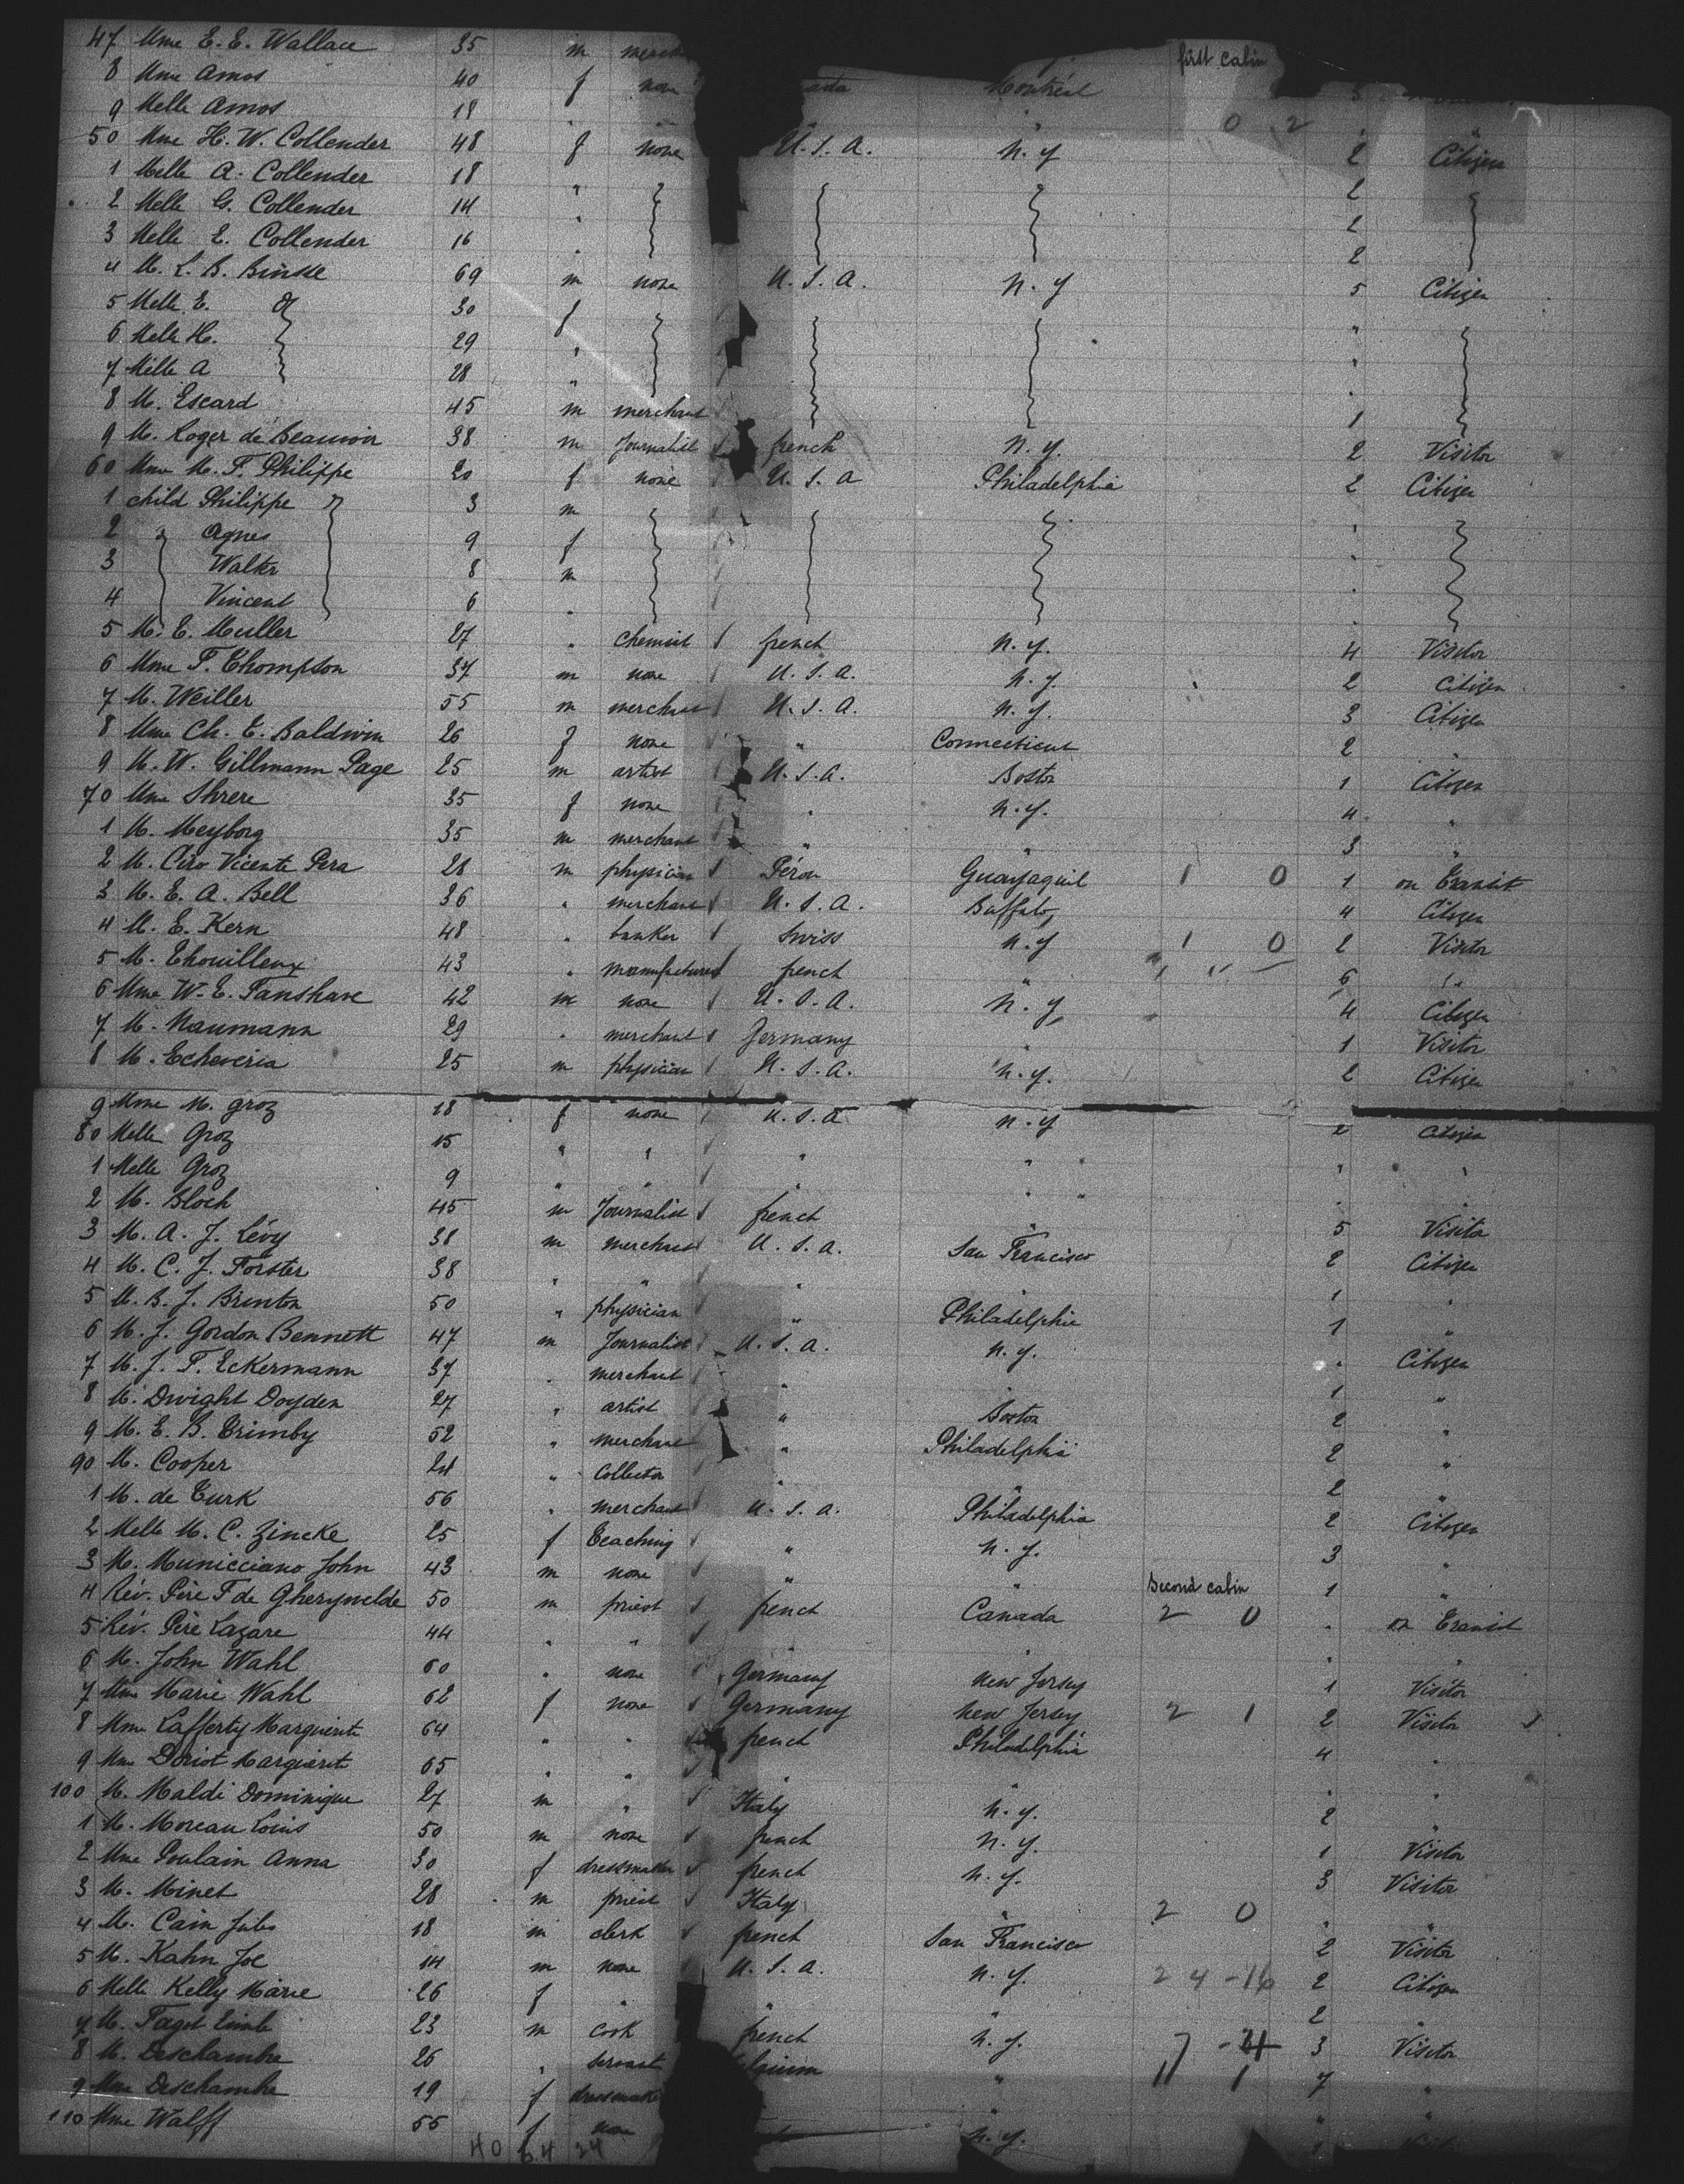 47 Mme E. E. Wallace 35 m first cabin
8 Mme Amos 40 f Montréal
9 Melle Amos 18 " 0 2
50 Mme H. W. Collender 48 f none U.S.A. N.Y 2 Citizen
1 Melle A. Collender 18 " 2
2 Melle G. Collender 14 " 2
3 Melle E. Collender 16 " 2
4 M. L. B. 69 m none U.S.A. N.Y 5 Citizen
5 Melle E. 30 f "
6 Melle H. 29 " "
7 Melle A 28 " "
8 M. Escard 45 m merchant 1
9 M. Roger de Beauvoir 38 m Journalist french N.Y. 2 Visitor
60 Mme M. F. Philippe 20 f none U.S.A Philadelphia 2 Citizen
1 child Philippe 3 m "
2 " Agnes 9 f "
3 Walter 8 m "
4 Vincent 6 " "
5 M. E. Muller 27 " chemist french N.Y. 4 Visitor
6 Mme F. Thompson 37 m none U.S.A. N.Y. 2 Citizen
7 M. Weiller 55 m merchant U.S.A. N.Y. 3 Citizen
8 Mme Ch. E. Baldwin 26 f none " Connecticut 2 "
9 M. W. Gillmann Page 25 m artist U.S.A. Boston 1 Citizen
70 Mme Shrere 35 f none " N.Y. 4 "
1 M. Meyborg 35 m merchant " " 3 "
2 M. Ciro Vicente Pera 28 m physician Pérou Guayaquil 1 0 1 on Transit
3 M. E. A. Bell 36 " merchant U.S.A. Buffalo 4 Citizen
4 M. E. Kern 48 " banker Swiss N.Y 1 0 2 Visitor
5 M. Thouilleux 43 " french " 6 "
6 Mme W. E. Fanshave 42 m none U.S.A. N.Y 4 Citizen
7 M. Naumann 29 " merchant Germany 1 Visitor
8 M. Echeveria 25 m physician U.S.A. N.Y. 2 Citizen
9 Mme M. Groz 18 f none U.S.A N.Y 2 Citizen
80 Melle Groz 15 " " " " "
1 Melle Groz 9 " " " " "
2 M. Bloch 45 m Journalist french " 5 Visitor
3 M. A. J. Lévy 38 m merchant U.S.A. San Francisco 2 Citizen
4 M. C. J. Forster 38 " " " " 1 "
5 M. B. J. Brinton 50 " physician " Philadelphia 1 "
6 M. J. Gordon Bennett 47 m Journalist U.S.A. N.Y. " Citizen
7 M. J. F. Eckermann 37 " merchant " " 1 "
8 M. Dwight Doyden 27 " artist " Boston 2 "
9 M. E. B. Trimby 52 " merchant " Philadelphia 2 "
90 M. Cooper 24 " Collector " " 2 "
1 M. de Turk 56 " merchant U.S.A. Philadelphia 2 Citizen
2 Melle M. C. Zincke 25 f Teaching " N.Y. 3 "
3 M. Municciano John 43 m none " " Second cabin 1 "
4 Rév. Père F de Gherynvelde 50 m priest french Canada 2 0 " on Transit
5 Rév. Père Lazare 44 " " " " " "
6 M. John Wahl 60 " none Germany New Jersey 1 Visitor
7 Mme Marie Wahl 62 f none Germany New Jersey 2 1 2 Visitor
8 Mme Lafferty Marguerite 64 " " french Philadelphia 4 "
9 Mme Doriot Marguerite 65 " " " " " "
100 M. Maldi Dominique 27 m " Italy N.Y. 2 "
1 M. Moreau Louis 50 m none french N.Y. 1 Visitor
2 Mme Poulain Anna 30 f dressmaker french N.Y. 3 Visitor
3 M. Minet 28 m priest Italy " 2 0 " "
4 M. Cain Jules 18 m clerk french San Francisco 2 Visitor
5 M. Kahn Joe 14 m none U.S.A. N.Y. 2 4 - 16 2 Citizen
6 Melle Kelly Marie 26 f " " " 2 "
7 M. Faget 23 m cook french N.Y. 3 Visitor
8 M. Deschambre 26 " servant " 11 1 7 "
9 Mme Deschambre 19 f " " "
110 Mme Walff 55 f none N.Y.
40 24